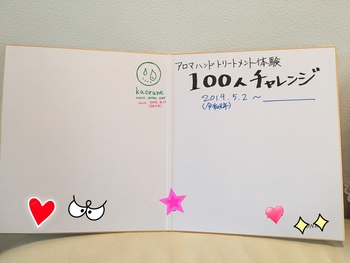 kaorune
アロマハンドトリートメント体験
100人チャレンジ
2019.5.2～